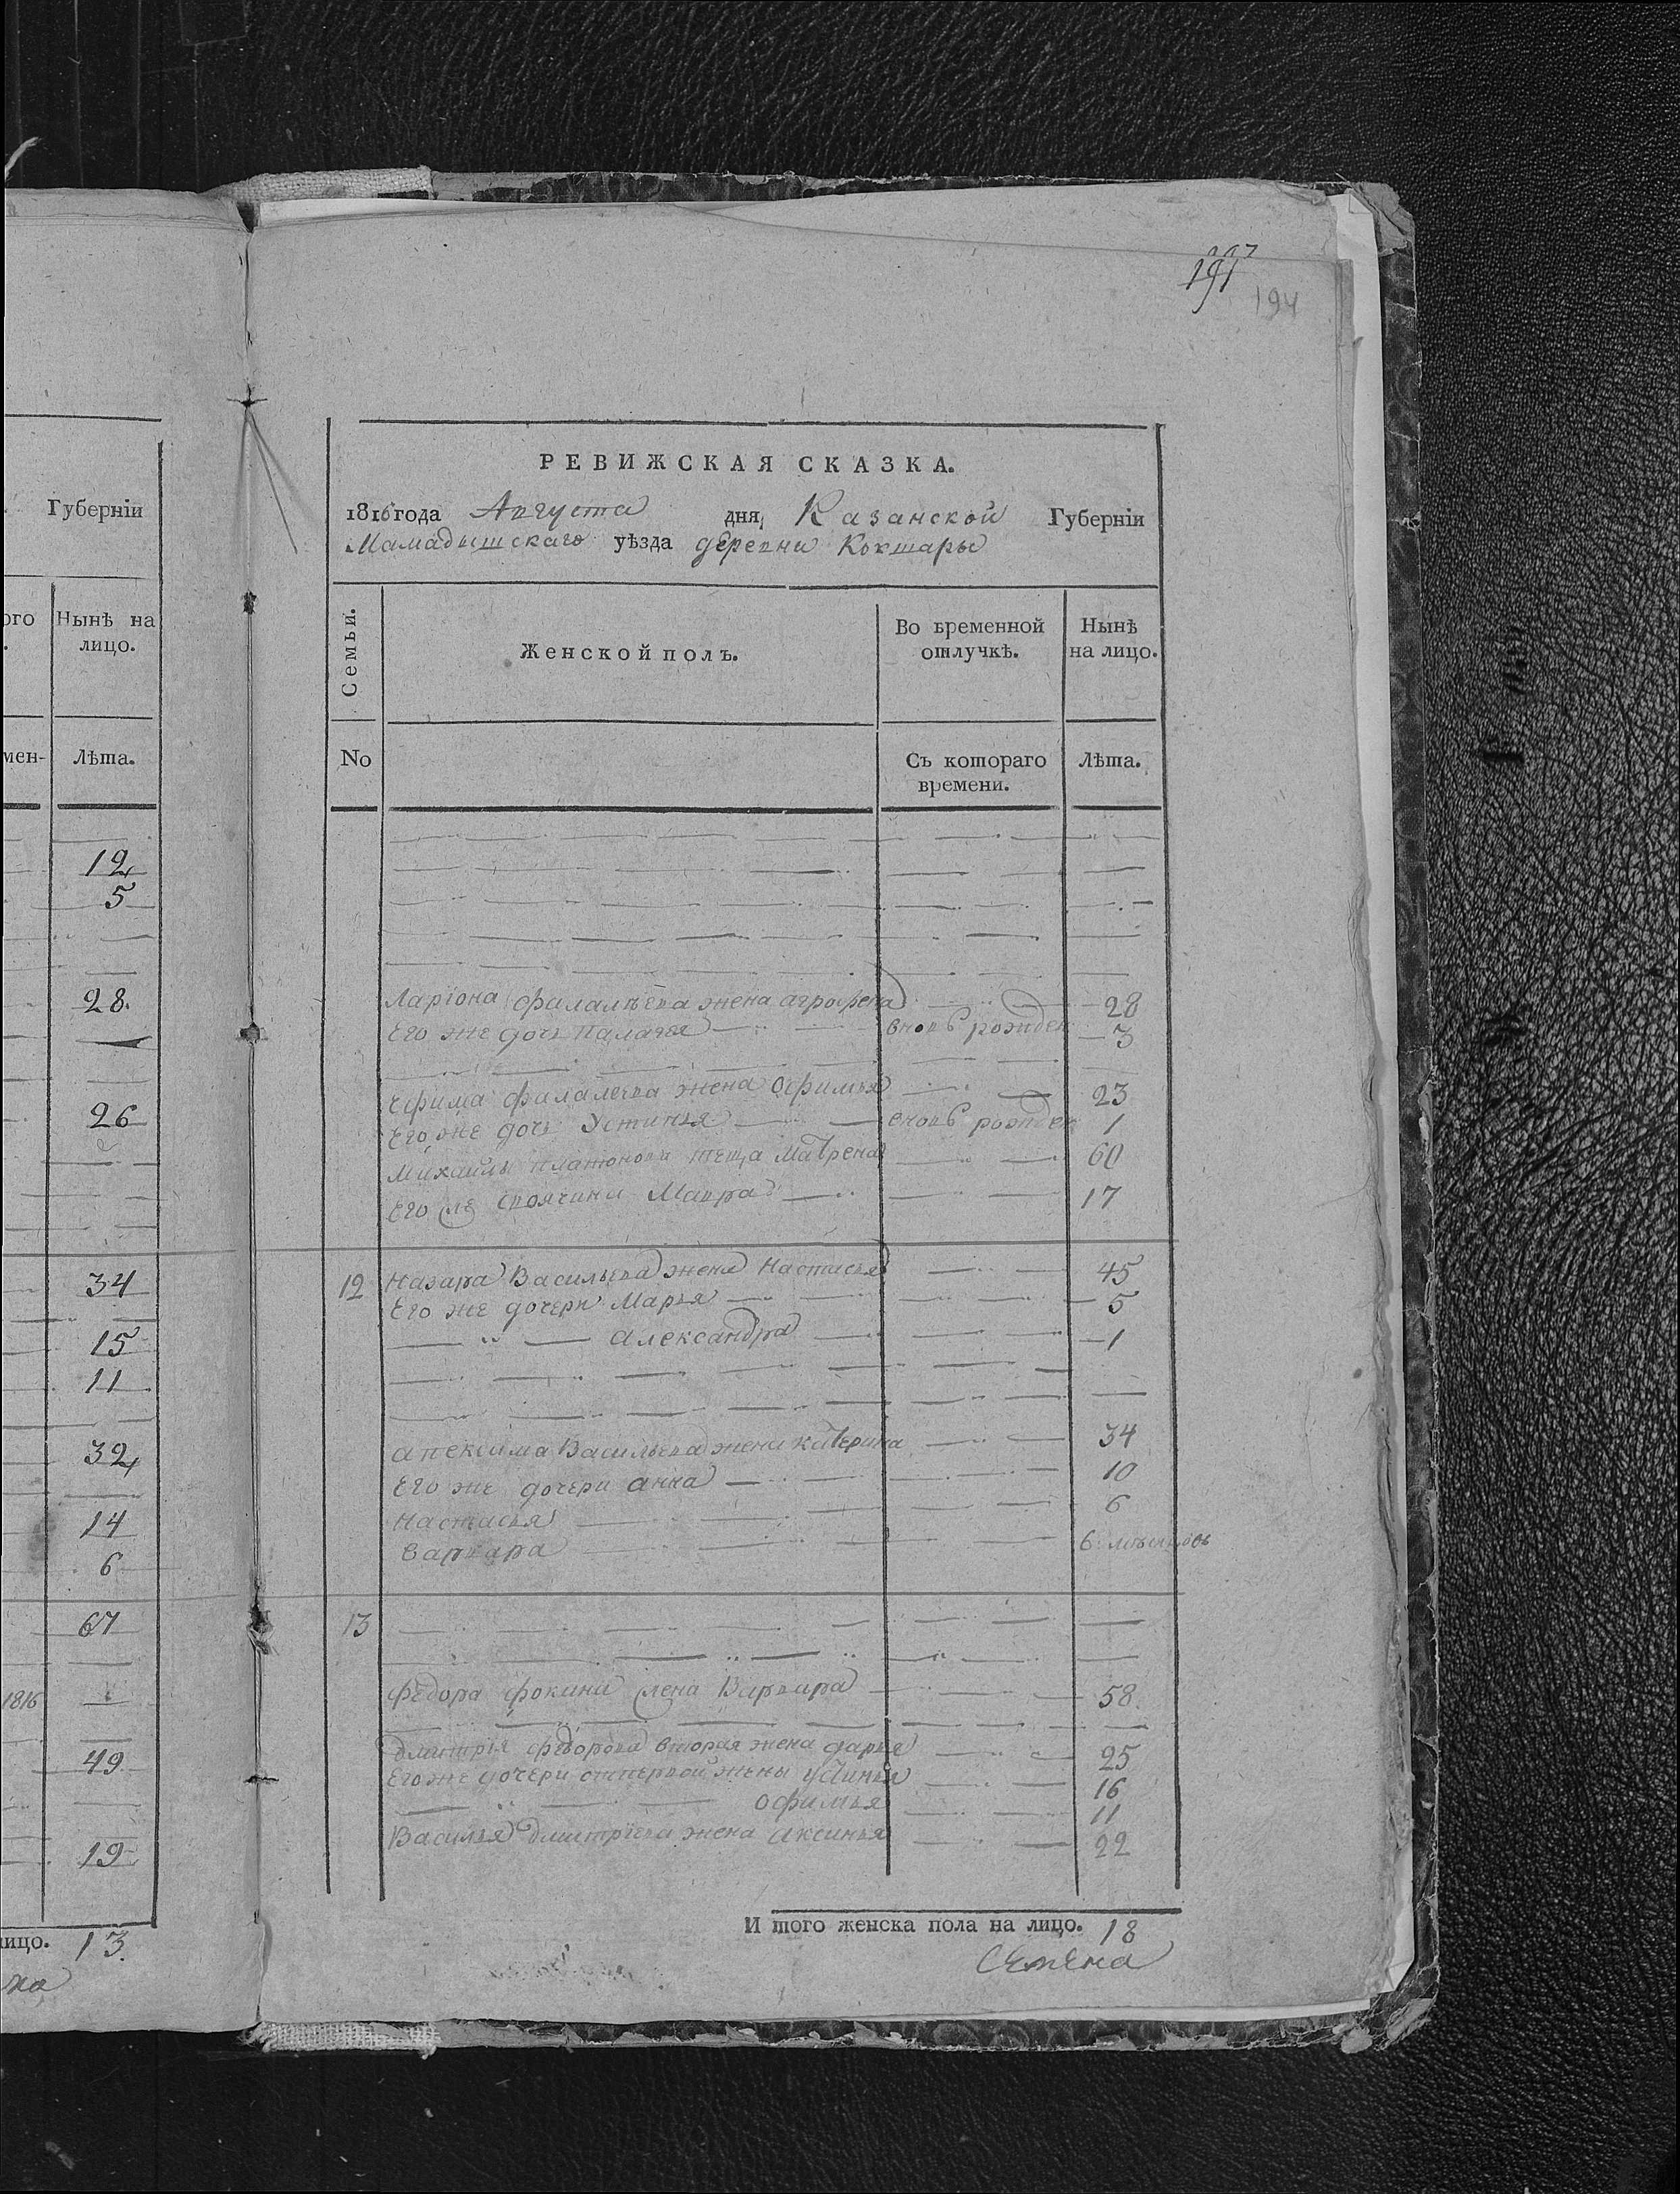 Губернiи
Нынѣ на
лицо.
Лѣта.
12
5
28.
26
34
15
11
32
14
6
67
1816
49
19
13.
191
194
РЕВИЖСКАЯ СКАЗКА.
1816 года Августа дня, Казанской Губернiи
Мамадышскаго уѣзда деревни Кокшары
Семьи.
Женской полъ.
Во временной отлучкѣ.
Нынѣ на лицо.
No
Съ котораго времени.
Лѣта.
Ларiона Филалѣева жена Агрофена 28
Его же дочь Палагея вновь рожден 3
Ефима Филалеева жена Офимья 23
Его же дочь Устинья вновь рожден 1
Михайлы Платонова теща Матрена 60
Его своячина Мавра 17
12 Назара Васильева жена Настасья 45
Его же дочери Марья 5
Александра 1
Васильева жена Катерина 34
Его же дочери Анна 10
Настасья 6
Варвара 6 месяцовъ
13
Федора Фокина жена Варвара 58.
Дмитрiя Федорова вторая жена Дарья 25
Его же дочери отпервой жены 16
Офимья 11
Василья Дмитрiева жена Аксинья 22
И того женска пола на лицо. 18